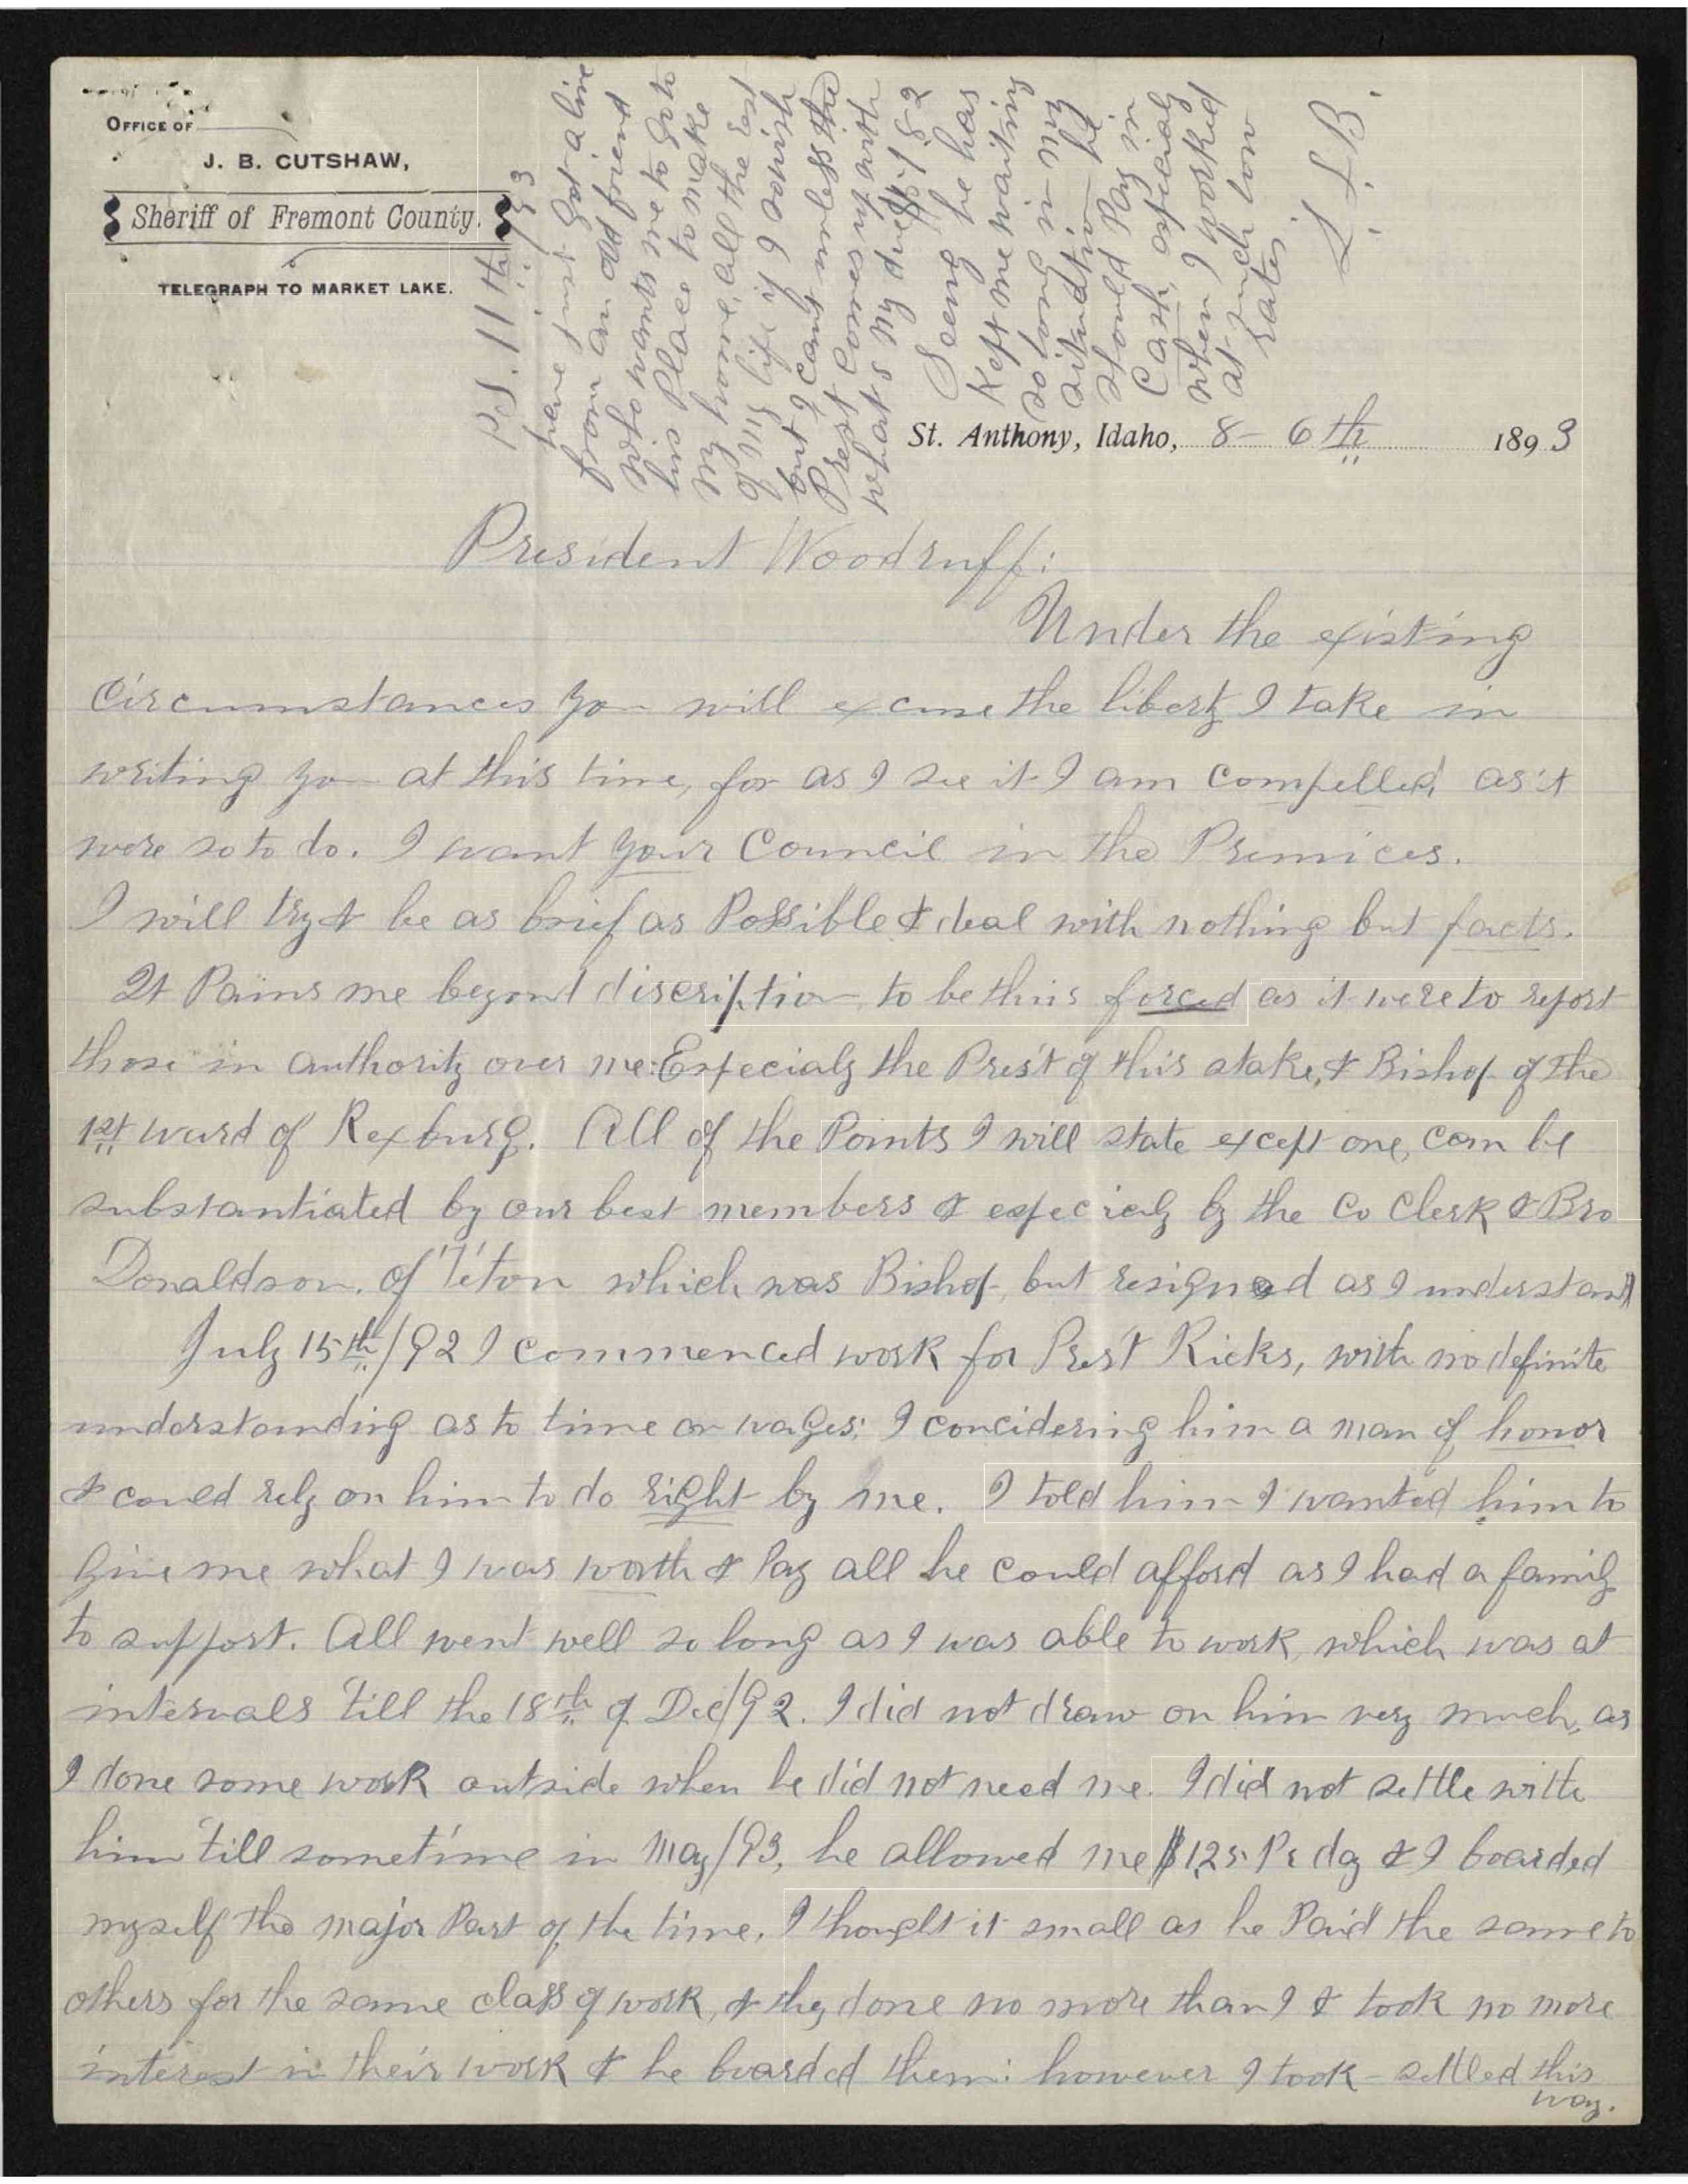 OFFICE OF
J. B. CUTSHAW,
Sheriff of Fremont County.
TELEGRAPH TO MARKET LAKE.
St. Anthony, Idaho, 8 - 6th 1893
President Woodruff:
Under the existing
circumstances you will excuse the liberty I take in
writing you at this time, for as I see it I am compelled, as it
were so to do. I want your Council in the Premices.
I will try & be as brief as Possible & deal with nothing but facts.
It Pains me beyond discription to be thus forced as it were to report
those in authority over me: Especialy the Pres't of this stake, & Bishop of the
1st ward of Rexburg. All of the Points I will state except one, can be
substantiated by our best members & especialy by the Co Clerk & Bro
Donaldson. of Teton which was Bishop, but resigned as I understand
July 15th/92 I commenced work for Pres't Ricks, with no definite
understanding as to time or wages; I concidering him a man of honor
& could rely on him to do right by me. I told him I wanted him to
give me what I was worth & Pay all he could afford as I had a family
to support. All went well so long as I was able to work, which was at
intervals till the 18th of Dec/92. I did not draw on him very much, as
I done some work outside when he did not need me. I did not settle with
him till sometime in May/93, he allowed me $1,25 Pr day & I boarded
myself the major Part of the time. I thought it small as he Paid the same to
others for the same class of work, & they done no more than I & took no more
interest in their work & he boarded them: however I took - settled this
way.
P.S. 11th /93
have just got a line
from an old friend
who wants me to go to
his Place to make
my home, all the rest
of my life if I so wish
but I cant unless the
Prest comes up with
whats my due
Seeing he has
Kept me waiting
so long in my
situation he
should Pay in
Cash, especialy
when I worked
at such low
rates